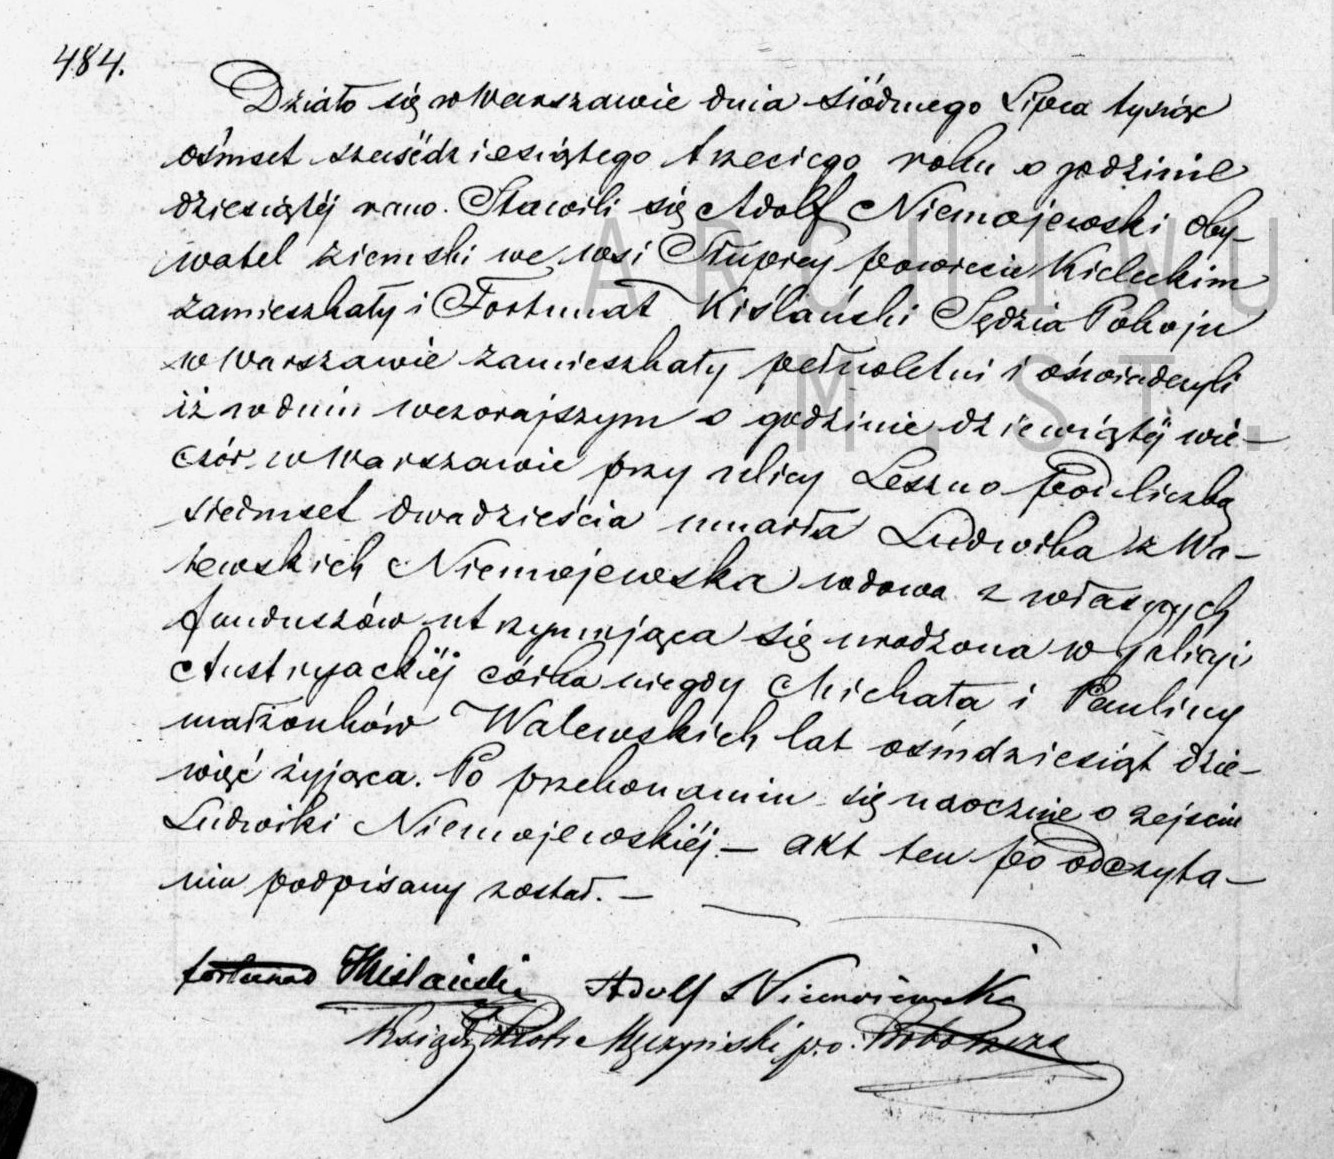 484.
Działo się w Warszawie dnia siódmego Lipca tysiąc
ośmset sześćdziesiątego trzeciego roku o godzinie
dziesiątéj rano. Stawili się Adolf Niemojewski oby-
watel ziemski we wsi Słupcy powiecie Kieleckim
zamieszkały i Fortunat Kiślański Sędzia Pokoju
w Warszawie zamieszkały pełnoletni i oświadczyli
iż w dniu wczorajszym o godzinie dziewiątéj wie-
czór w Warszawie przy ulicy Leszno pod liczbą
siedmset dwadzieścia umarła Ludwika z Wa-
lewskich Niemojewska wdowa z własnych
funduszów utrzymująca się urodzona w Galicyi
Austryackiéj córka niegdy Michała i Pauliny
małżonków Walewskich lat ośmdziesiąt dzie-
więć żyjąca. Po przekonaniu się naocznie o zejściu
Ludwiki Niemojewskiéj. — akt ten po odczyta-
niu podpisany został. —
fortunat Kislański Adolf Niemojewski
Ksiądz Piotr Męczyński p.o. Proboszcza
ARCHIWU
M . ST.